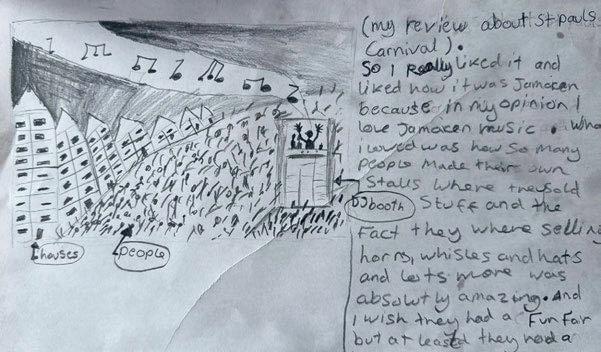 (my review about st pauls
Carnival).
So I Really liked it and
liked how it was Jamacen
because in my opinion I
love Jamacen music. What
i loved was how so many
people made their own
Stalls where they sold
Stuff and the
Fact they where selling
horns, whisles and hats
and lots more was
absolutly amazing. And
I wish they had a Fun Far
but at least they had a
DJ booth
houses
people